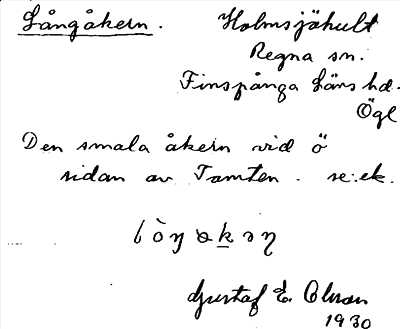 Långåkern. Holmsjöhult
Regna sn.
Finspånga läns hd.
Ögl
Den smala åkern vid ö
sidan av Tomten. se: ek.
Gustaf E. Olsson
1930